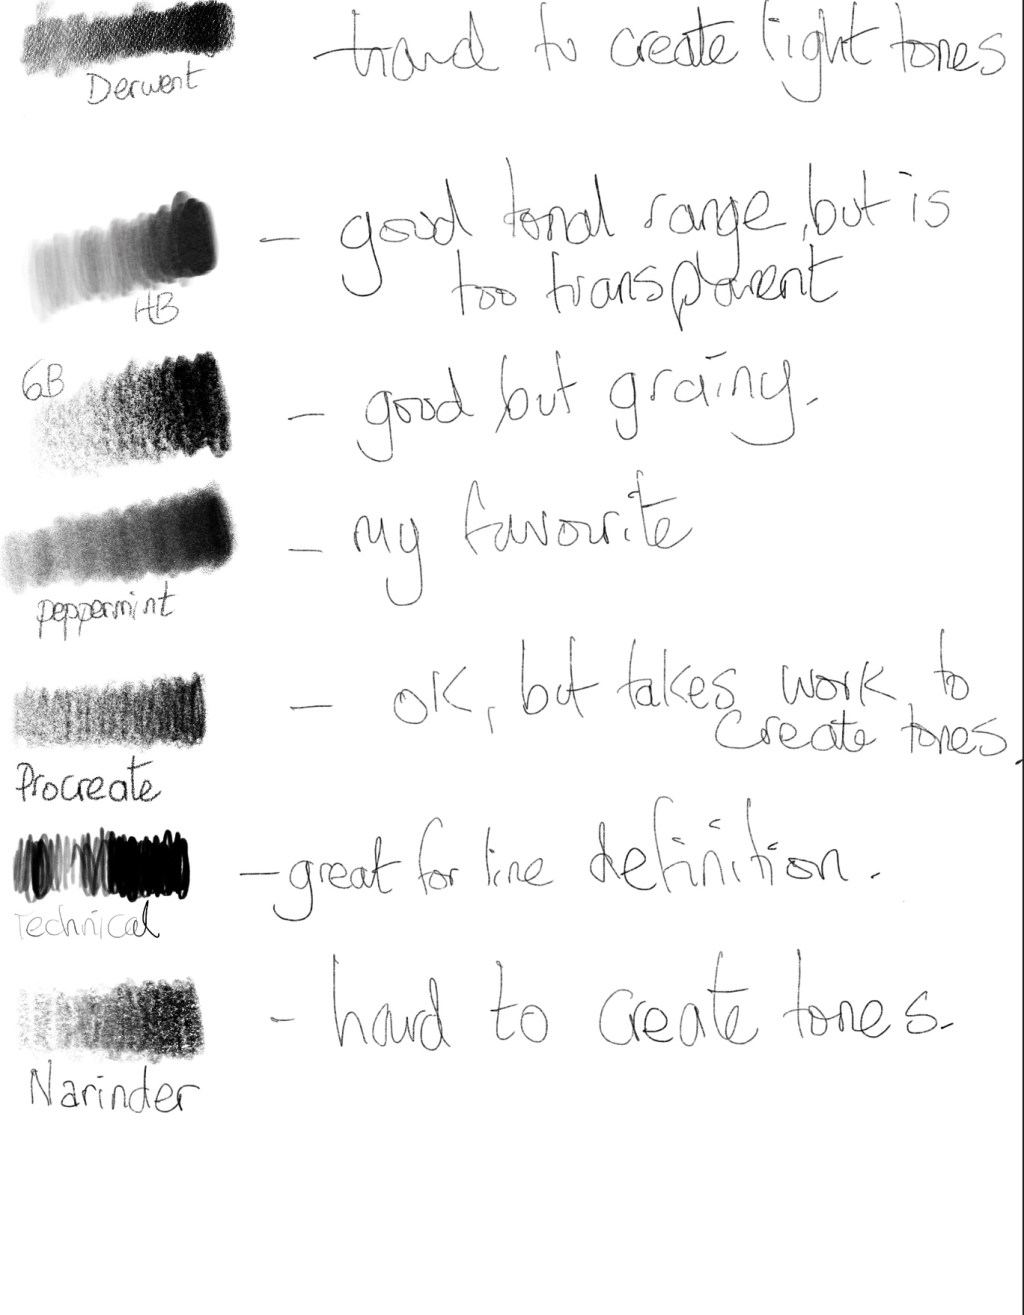 - hard to create light tones
Derwent
- good tonal range, but is
too transparent
HB
6B
- good but grainy.
- my favourite
peppermint
- OK, but takes work to
create tones.
Procreate
- great for line definition.
Technical
- hard to create tones.
Narinder